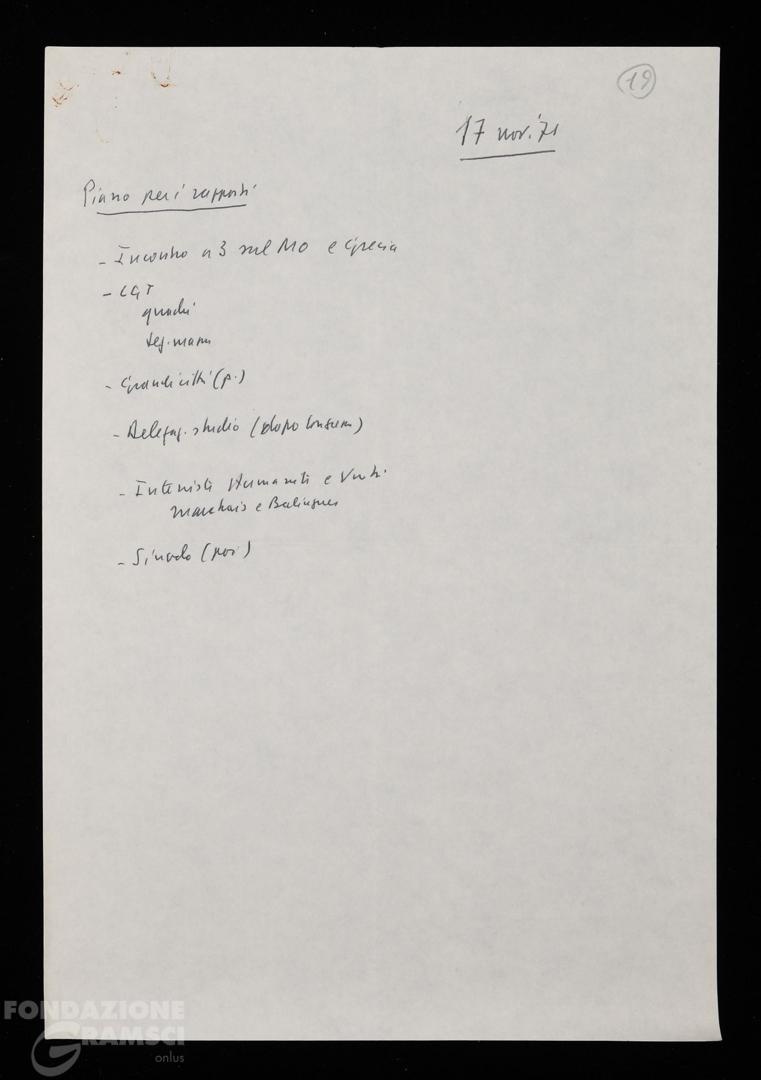 19
17 nov. '71
Piano per i rapporti
- Incontro a 3 sul MO e Grecia
- CGT
quadri
- Grandi città (p.)
- Delegaz. studio (dopo
- Interviste Humanité e
Marchais e Berlinguer
- Sinodo (poi)
FONDAZIONE
GRAMSCI
onlus